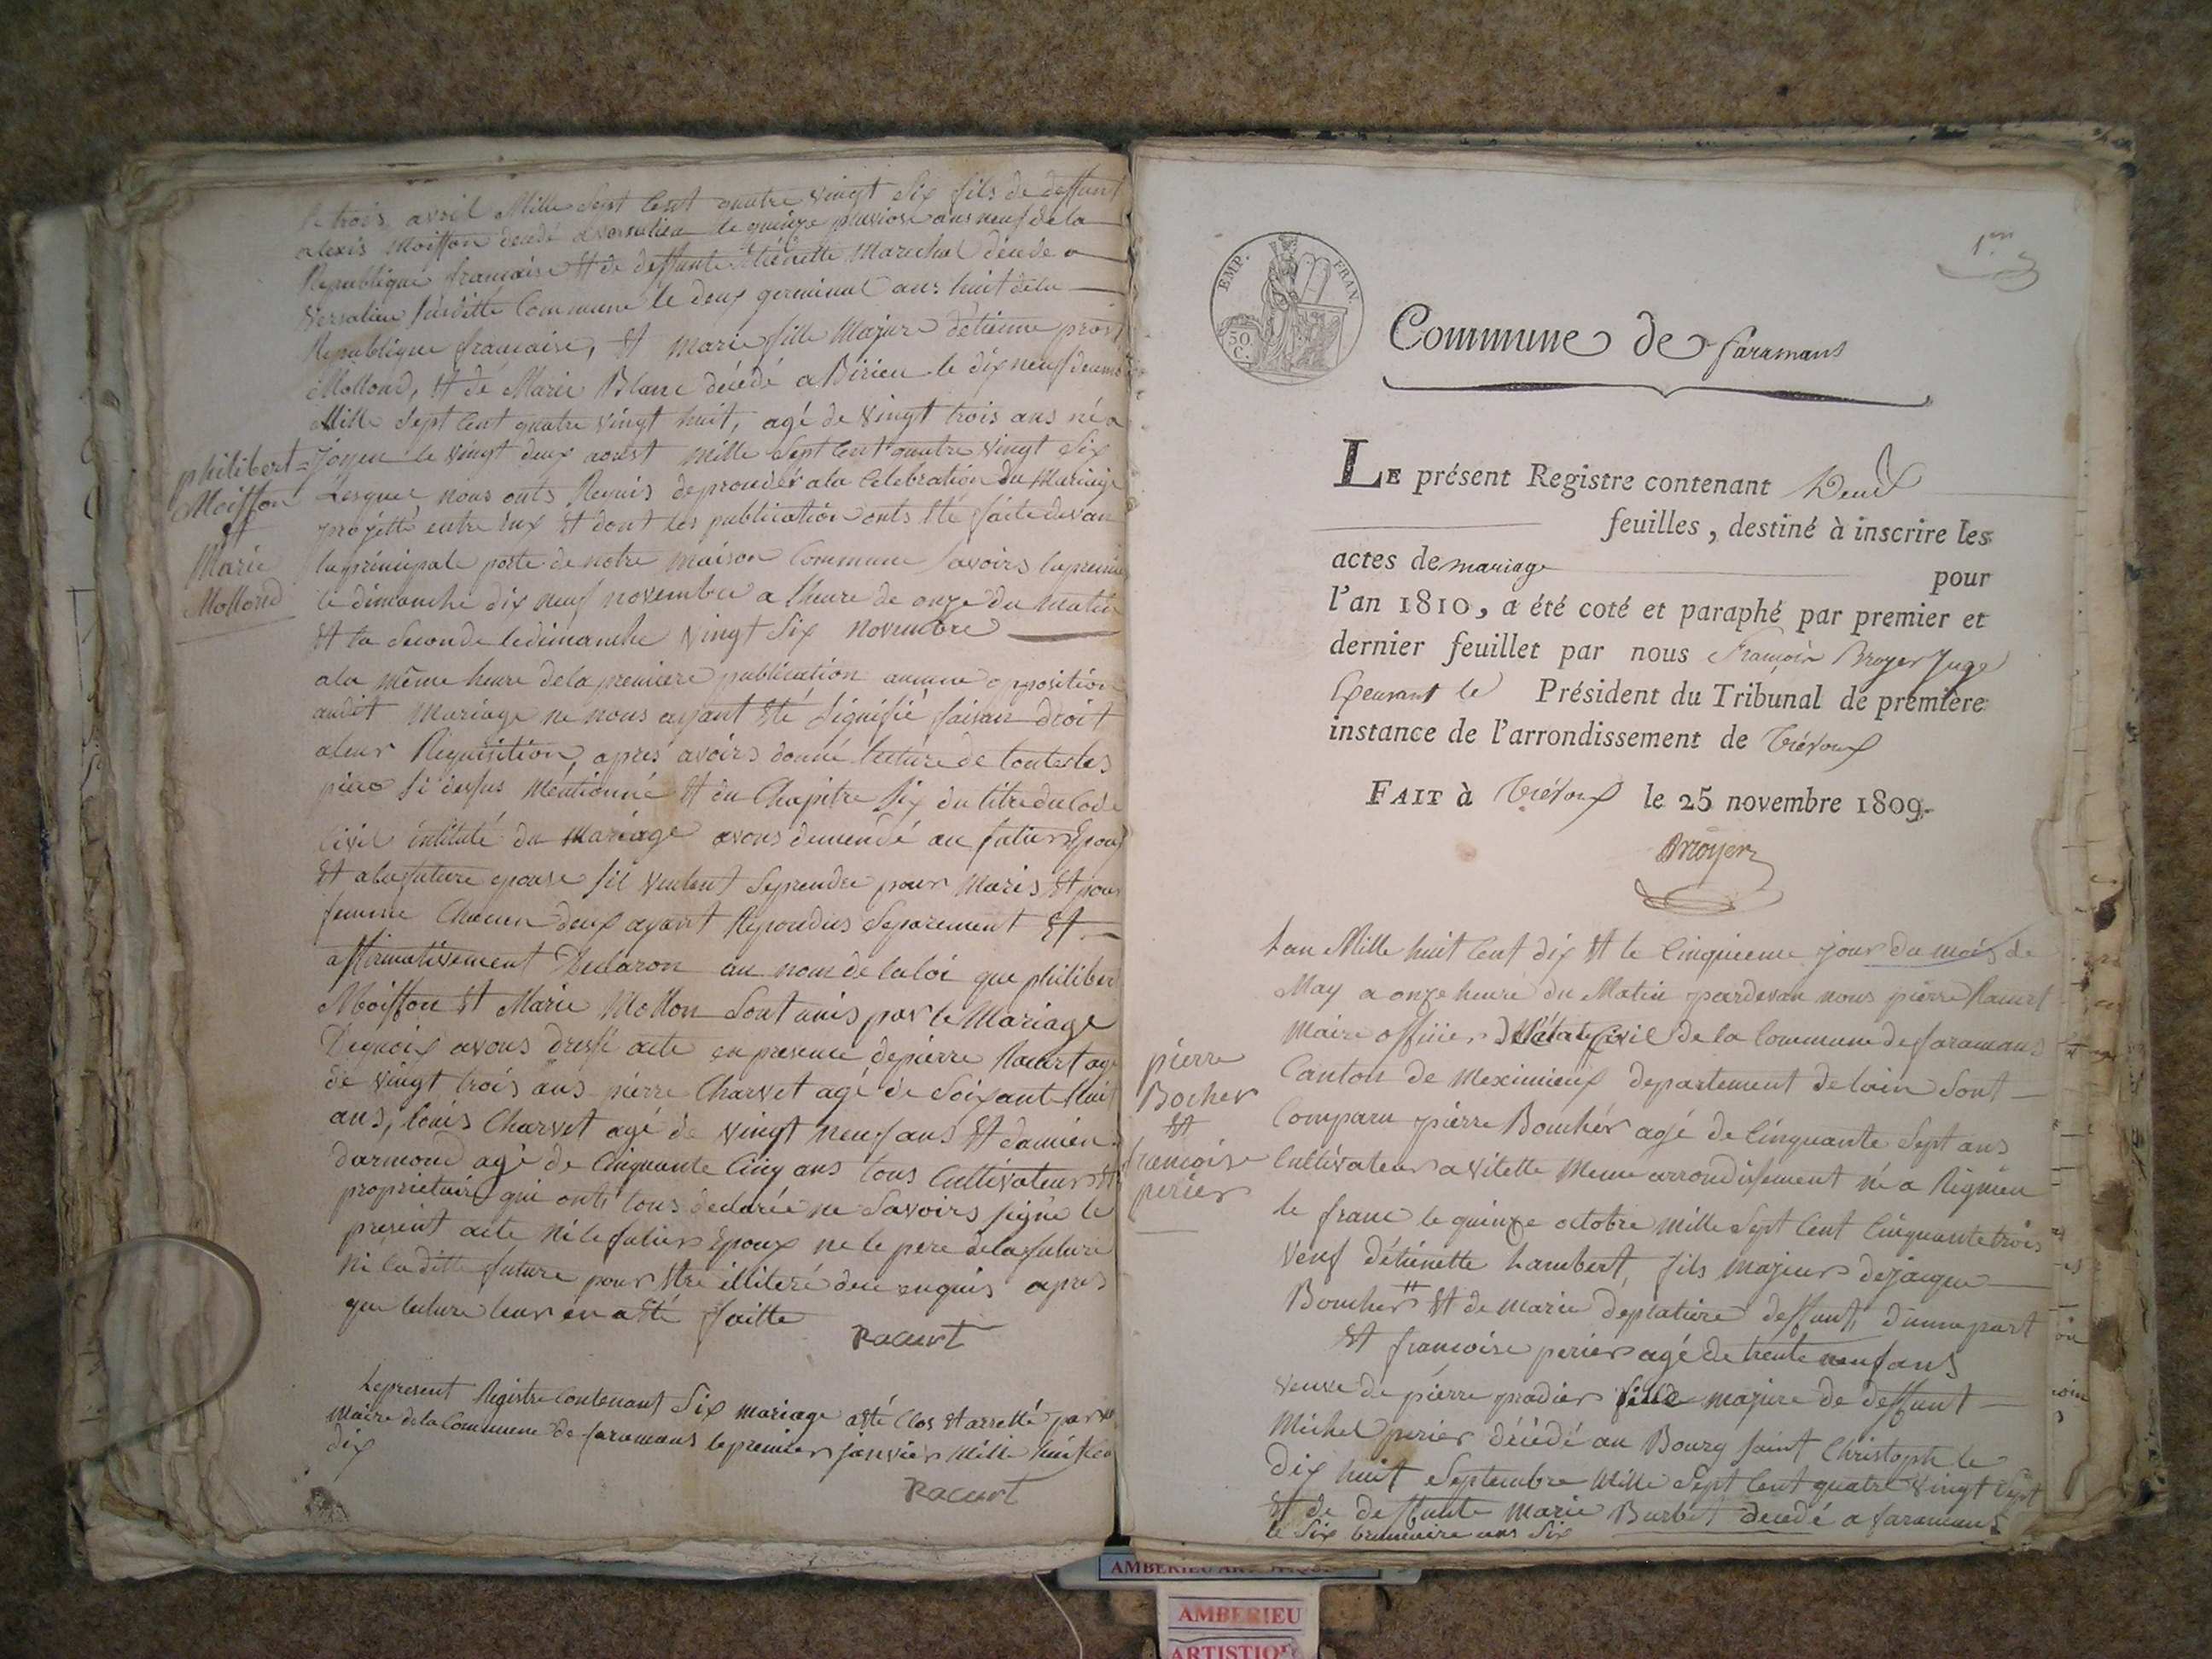 le trois avril Mille Sept Cent quatre vingt Six fils de deffunt
alexis Moiffon décédé a versalieu le quinze pluviose ans neuf de la
Republique francaise Et de deffunte Etiénette Marechal décédé a
versalieu susditte Commune le deux germinal ans huit de la
Republique francaise, Et marie fille Majure détienne prost
Mollond, Et de Marie Blanc décédé a Birieu le dix neuf
Mille Sept Cent quatre vingt huit, agé de vingt trois ans né a
Joyeu le vingt deux aoust mille Sept Cent quatre vingt Six
Lesquel nous onts Requis de proceder a la Celebration du Mariage
projetté entre Eux Et dont les publication onts Eté faite devan
la principale porte de notre maison Commune Savoirs la premier
le dimanche dix neuf novembre a l'heure de onze du matin
Et la Seconde le dimanche vingt Six Novembre
a la même heure de la premiere publication aucune opposition
audit Mariage ne nous ayant Eté Signifié faisan droit
a leur Requisition, apres avoirs donné lecture de toutes les
pieces Si dessus Méntionné Et du Chapitre Six du titre du Code
Civil intitulé du Mariage avons demendé au futur Epoux
Et a la future epouse Sil veulent Seprendre pour Maris Et pour
femme Chacun deux ayant Repondus Separement Et
affirmativement Declaron au nom de la loi que philiber
Moiffon Et Marie Mollon Sont unis par le Mariage
Dequoix avons dressé acte en presence de pierre Racurt agé
de vingt trois ans pierre Charvet agé de Soixante huit
ans, louis Charvet agé de vingt neuf ans Et damien
darmond agé de Cinquante Cinq ans tous Cultivateur Et
proprietaire qui onts tous declarée ne Savoirs signé le
present acte ni le futur Epoux ne le pere de la future
ni la ditte future pour Etre illiteré de ce enquis apres
que lecture leur en a Eté faitte
Racurt
Le present Registre Contenant Six mariage a Eté Clos Et arretté par
Maire de la Commune de faramans le premier janvier Mille huit Cen
dix
Racurt
philibert
Moiffon
et
Marie
Mollond
1.er
EMP. FRAN.
50 C.
Commune de faramans
LE présent Registre contenant Deux
feuilles, destiné à inscrire les
actes de mariage pour
l'an 1810, a été coté et paraphé par premier et
dernier feuillet par nous François Broyer Juge
Exeursant le Président du Tribunal de première
instance de l'arrondissement de Trévoux
FAIT à Trévoux le 25 novembre 1809.
Broyer
Lan Mille huit Cent dix Et le Cinquieme jour du mois de
May a onze heure du Matin pardevan nous pierre Racurt
Maire officier De l'état Civil de la Commune de faramans
Canton de Meximieux departement de lain Sont
Comparu pierre Boucher agé de Cinquante Sept ans
Cultivateur a vilette Meme arrondissement né a Rignieu
le franc le quinze octobre Mille Sept Cent Cinquante trois
Veuf d'étiénette Lambert, fils majeur de jacque
Boucher Et de Marie deplatiere deffunt, dunne part
Et françoise perier agé de trente neuf ans
veuve de pierre pradier fille majure de deffunt
Michel perier décédé au Bourg Saint Christophe le
Dix huit Septembre Mille Sept Cent quatre vingt Sept
Et de deffunte Marie Barbet decedé a faramans
le Six brumaire ans Six
pierre
Bocher
Et
francoise
perier
AMBERIEU
AMBERIEU
ARTISTIQ